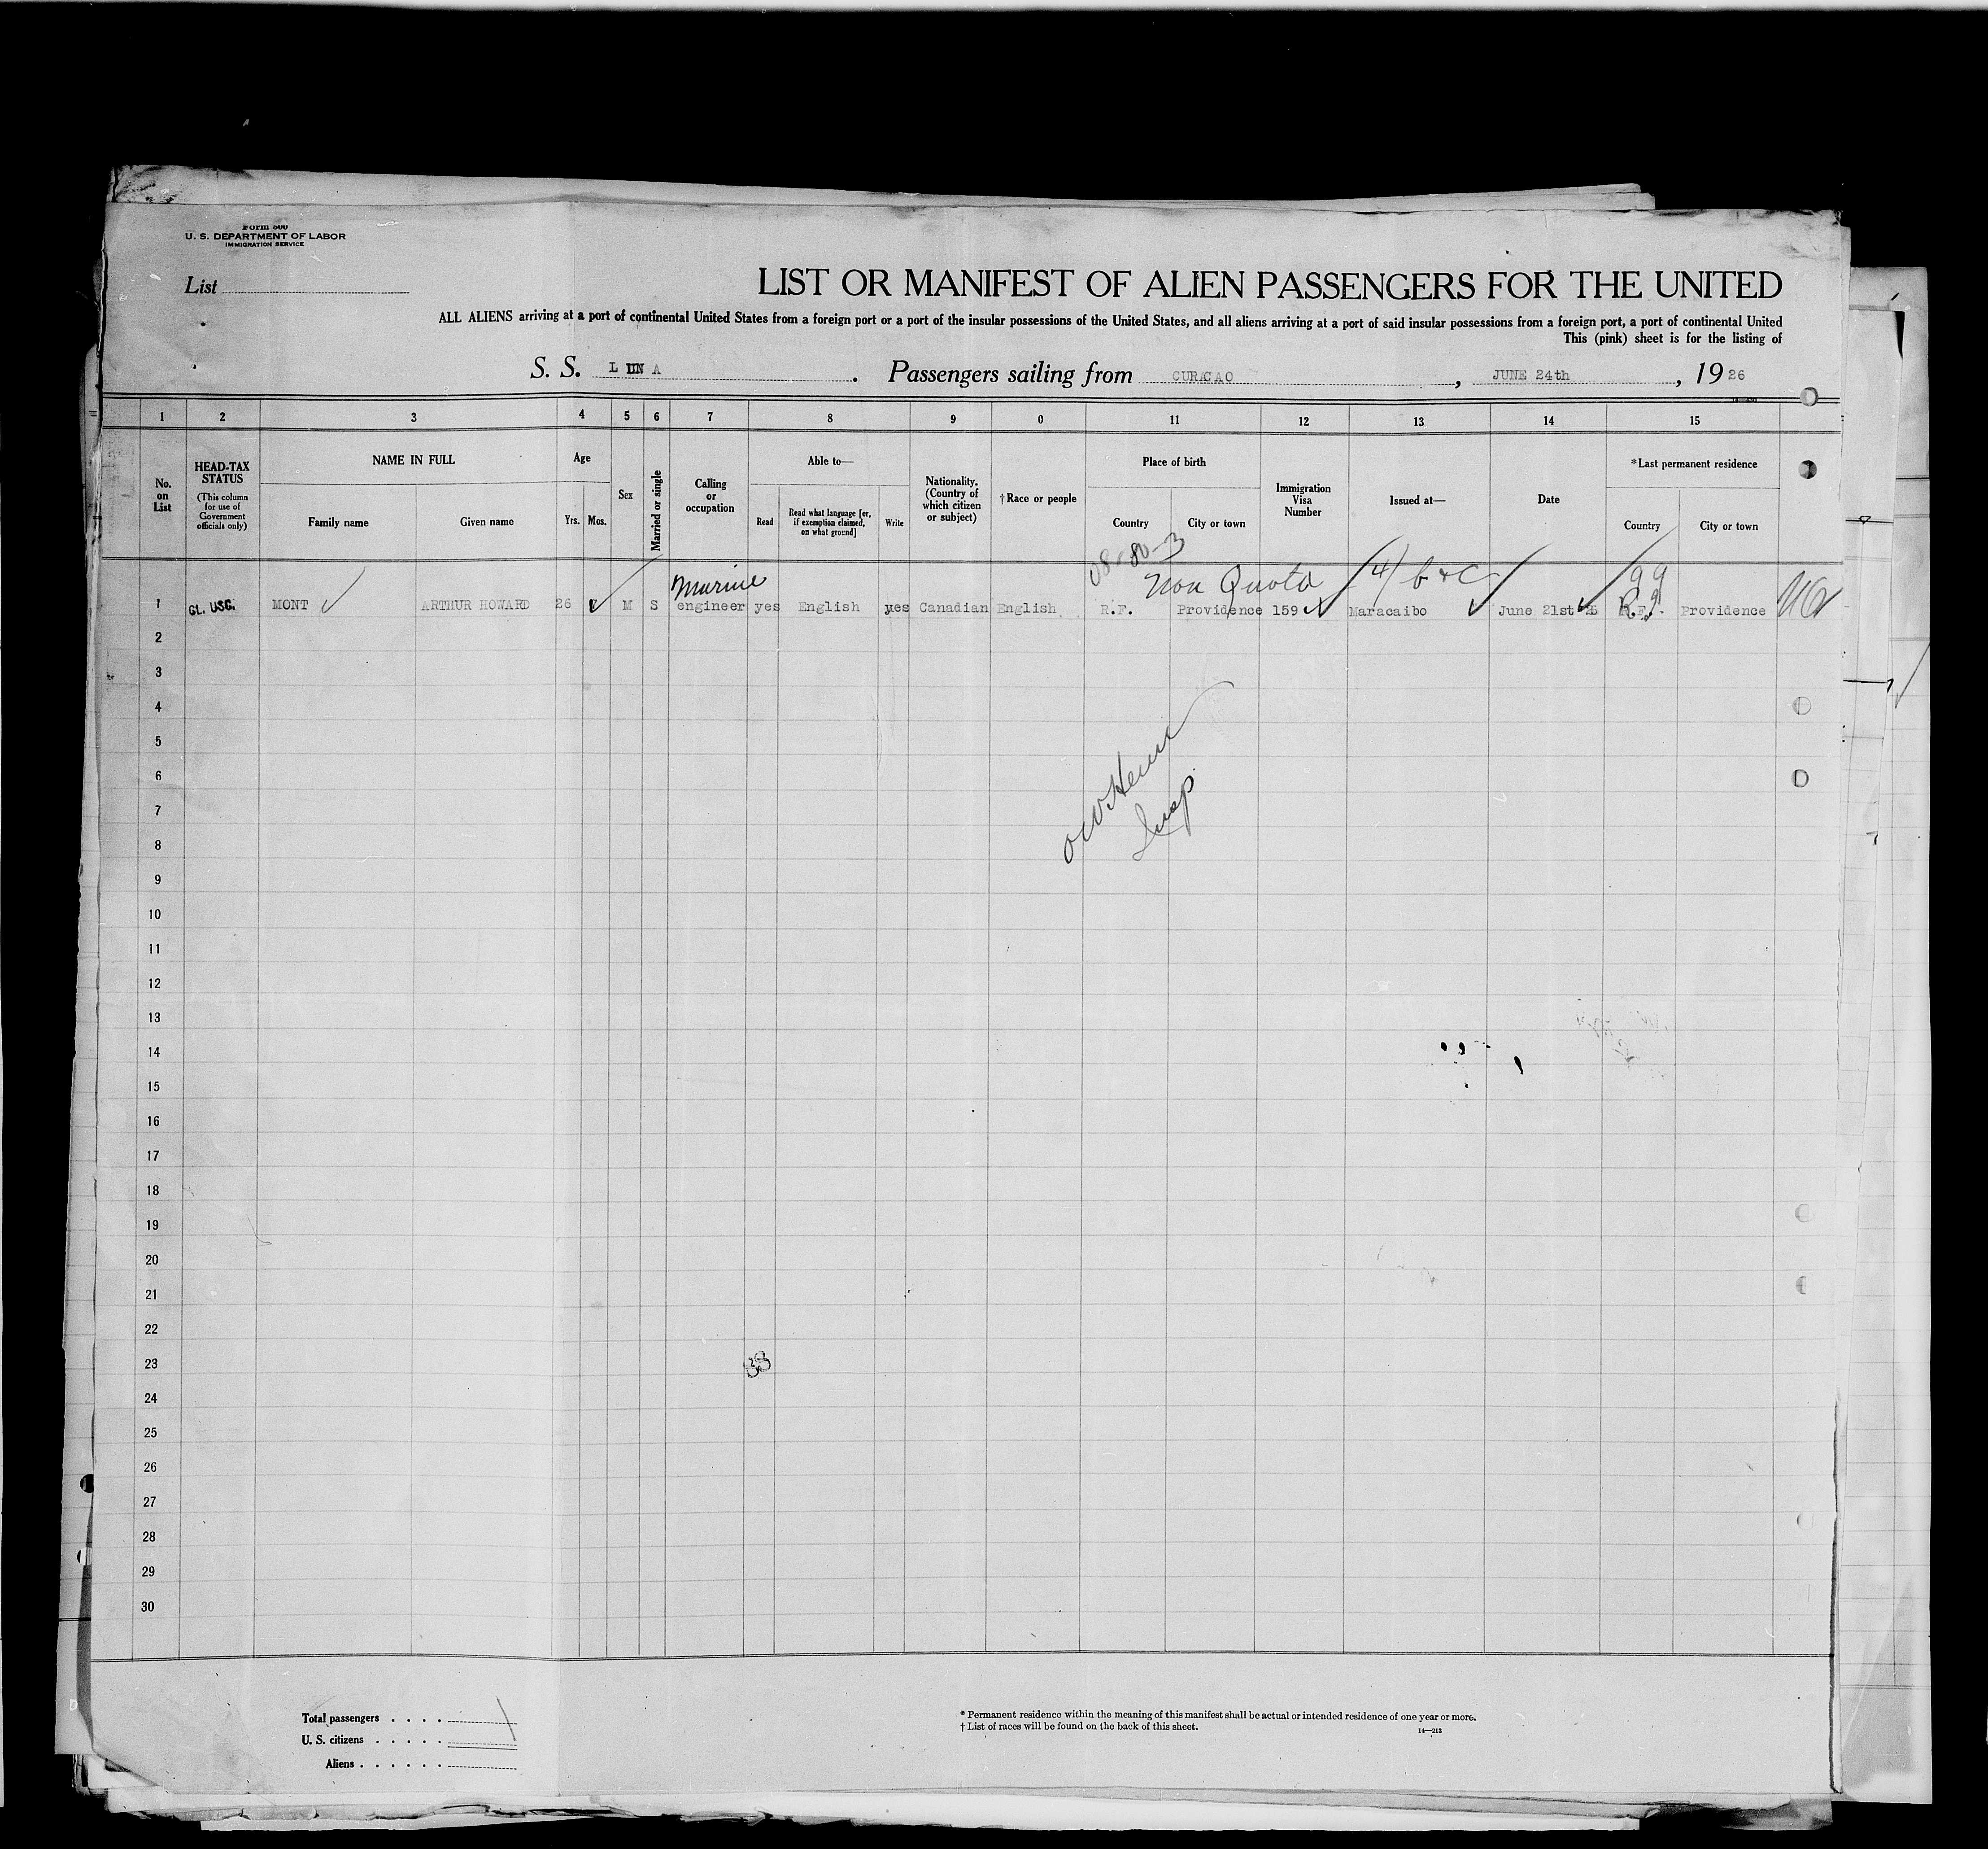 Form 500
U. S. DEPARTMENT OF LABOR
IMMIGRATION SERVICE
List
LIST OR MANIFEST OF ALIEN PASSENGERS FOR THE UNITED
ALL ALIENS arriving at a port of continental United States from a foreign port or a port of the insular possessions of the United States, and all aliens arriving at a port of said insular possessions from a foreign port, a port of continental United
This (pink) sheet is for the listing of
S. S. LUNA. Passengers sailing from CURACAO, JUNE 24th, 1926
1 2 3 4 5 6 7 8 9 0 11 12 13 14 15
No. on List
HEAD-TAX STATUS
(This column for use of Government officials only)
NAME IN FULL
Family name
Given name
Age
Yrs. Mos.
Sex
Married or single
Calling or occupation
Able to—
Read
Read what language [or, if exemption claimed, on what ground]
Write
Nationality. (Country of which citizen or subject)
†Race or people
Place of birth
Country
City or town
Immigration Visa Number
Issued at—
Date
*Last permanent residence
Country
City or town
08-80-3
Non Quota 4) b & c 99
Marine
1 GL. USC. MONT ARTHUR HOWARD 26 M S engineer yes English yes Canadian English R.F. Providence 159 Maracaibo June 21st Providence
2
3
4
5
6
7
Insp
8
9
10
11
12
13
14
15
16
17
18
19
20
21
22
23
33
24
25
26
27
28
29
30
Total passengers . . . .
U. S. citizens . . . . .
Aliens . . . . . .
* Permanent residence within the meaning of this manifest shall be actual or intended residence of one year or more.
† List of races will be found on the back of this sheet.
14—213